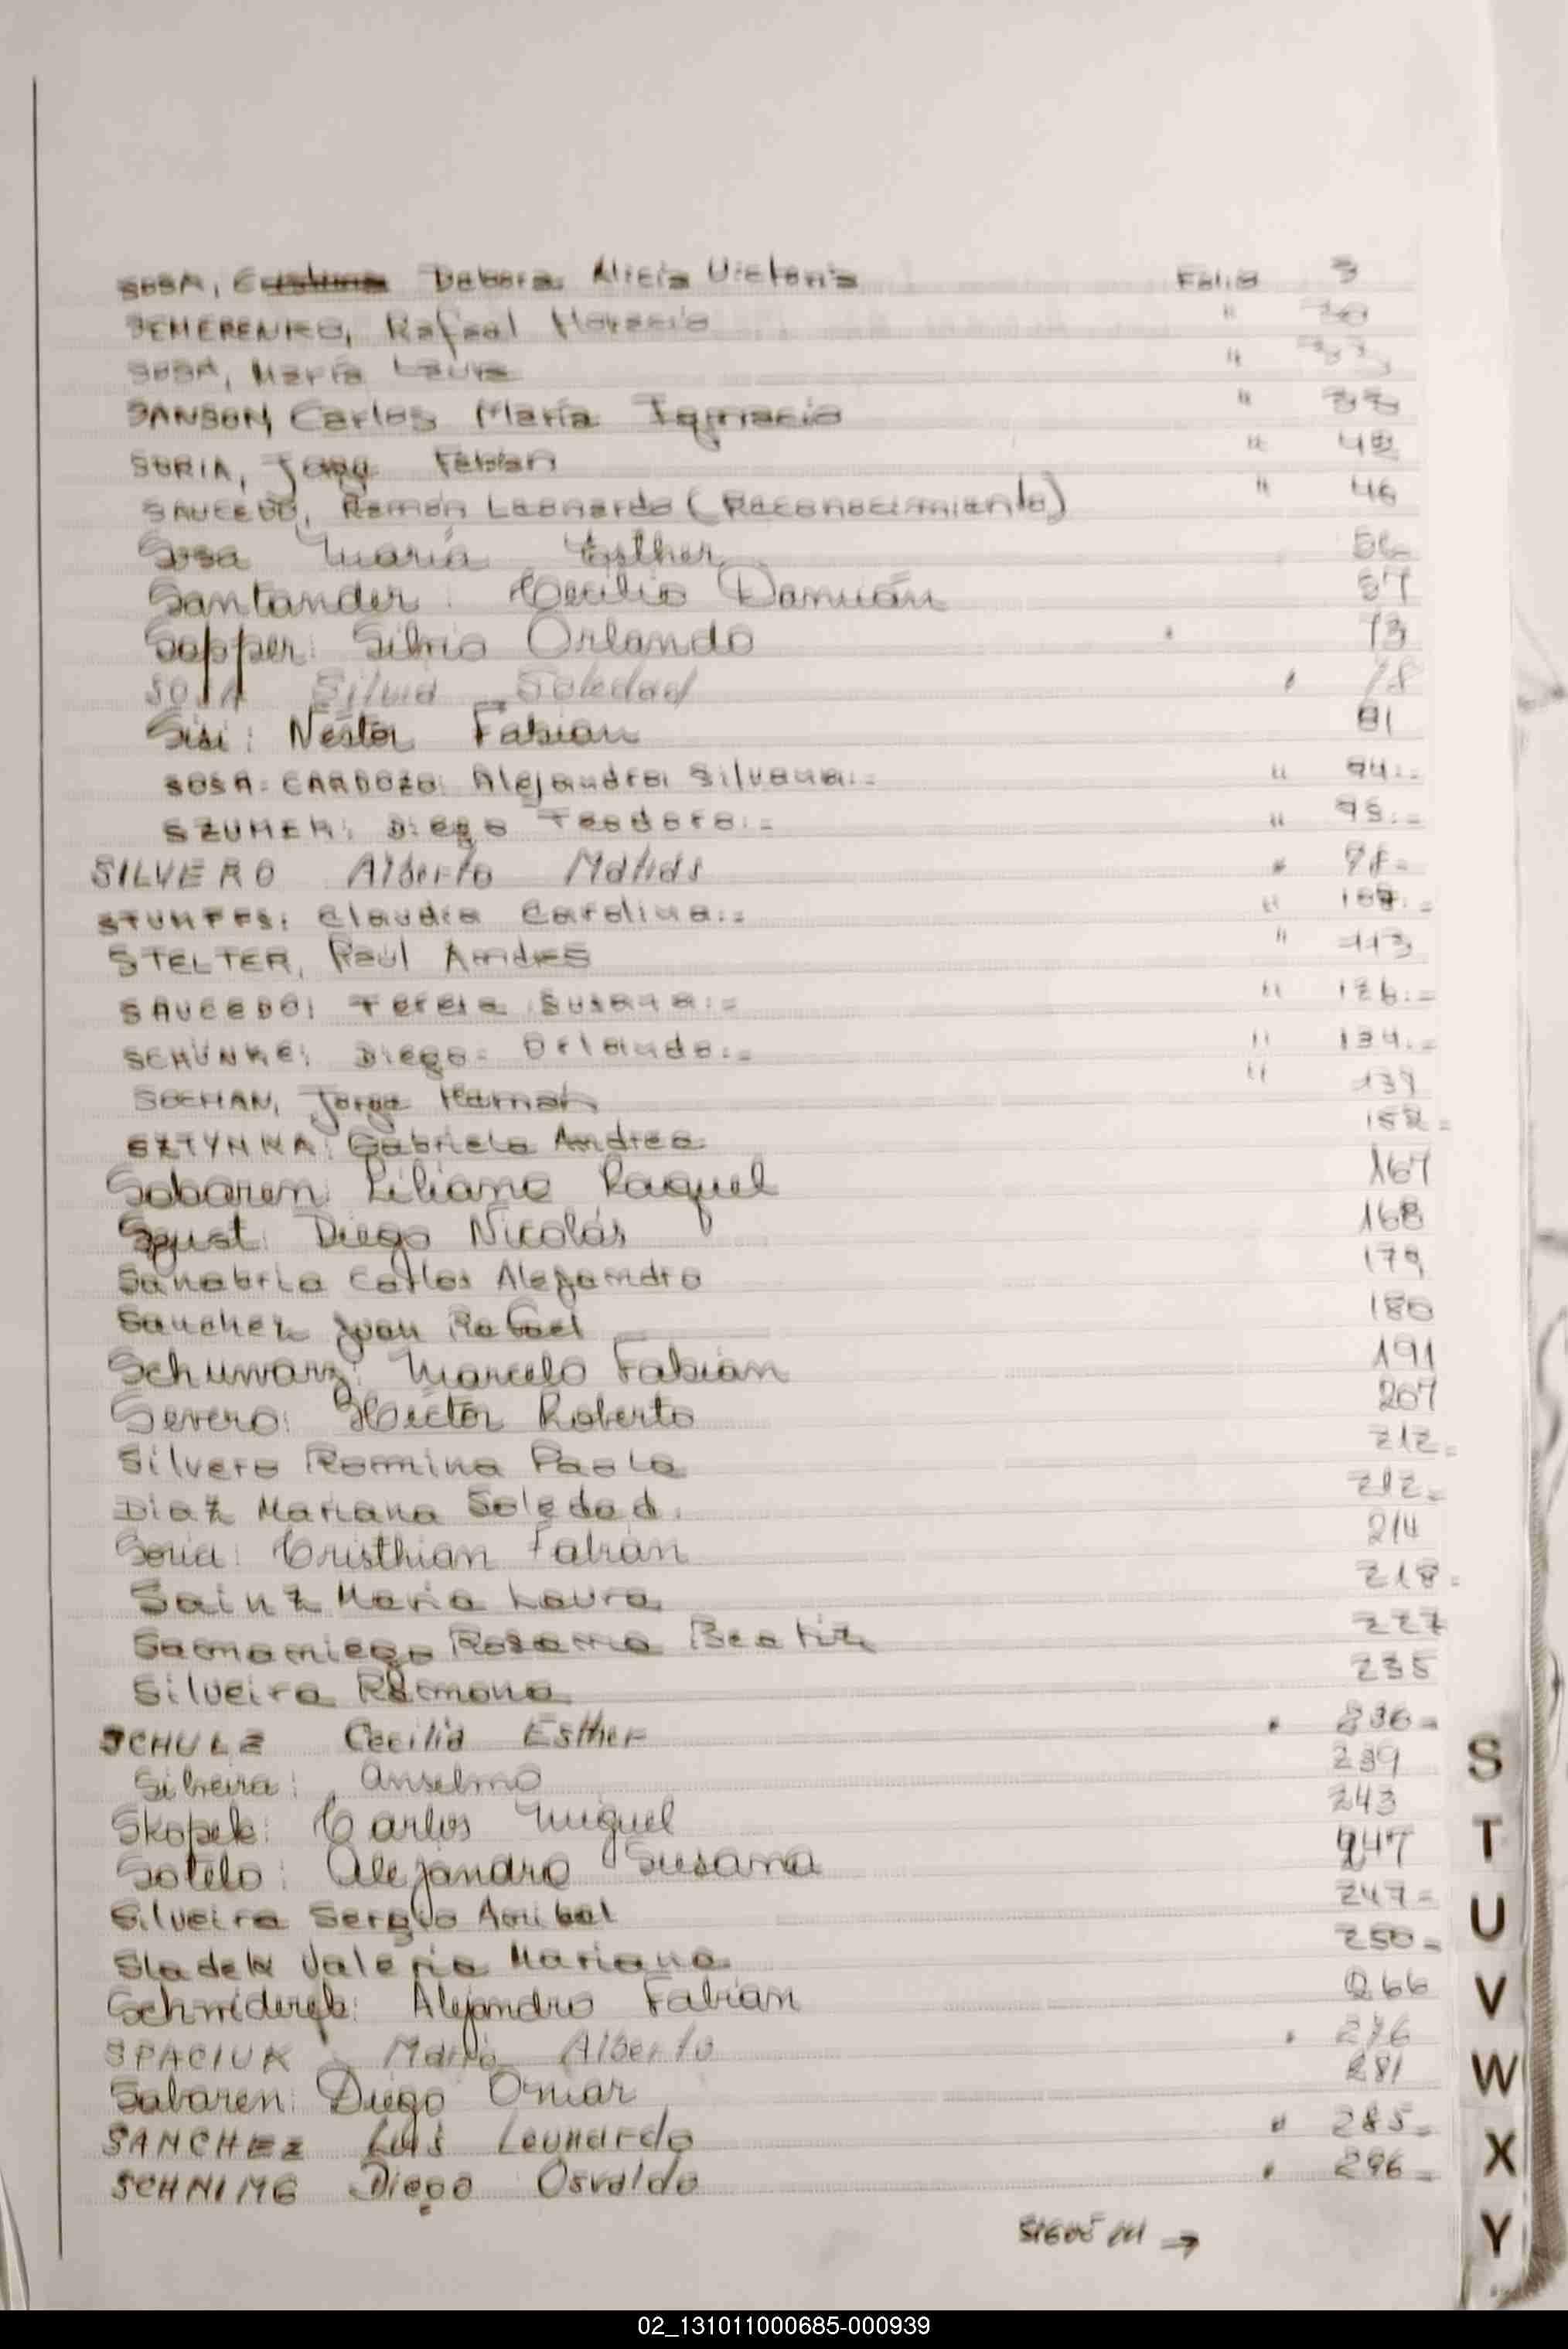 SOSA, Debora Alicia Victoria Folio 3
SEMERENKO, Rafael Horacio " 20
SOSA, María Laura "
SANSON, Carlos María Ignacio " 33
SORIA, Jorge Fabian " 42
SAUCEDO, Ramón Leonardo (Reconocimiento) " 46
Sosa María Esther 56
Santander: Cecilio Damián 57
Sapper: Silvio Orlando 73
SOSA Silvia Soledad " 78
Sisi: Néstor Fabian 81
SOSA-CARDOZO: Alejandra Silvana.= " 94.=
SZUMER: Diego Teodoro.= " 95.=
SILVERO Alberto Matias " 98=
STUMPFS: Claudia Carolina.= " 107.=
STELTER, Raúl Andres " 113
SAUCEDO: Teresa Susana.= " 126.=
SCHÜNKE: Diego Orlando.= " 134.=
SOCHAN, Jorge Hernan " 139
SZTYNKA: Gabriela Andrea 152=
Sabaren: Liliana Raquel 167
Spust: Diego Nicolás 168
Sanabria Carlos Alejandro 179
Sanchez Juan Rafael 180
Schuwarz: Marcelo Fabián 191
Severo: Héctor Roberto 207
Silvero Romina Paola 212=
Diaz Mariana Soledad. 212=
Soria: Cristhian Fabián 214
Sainz Maria Laura 218=
Samaniego Rosana Beatriz 227
Silveira Ramona 235
SCHULZ Cecilia Esther " 236=
Silveira: Anselmo 239
Skopek: Carlos Miguel 243
Sotelo: Alejandra Susana 247
Silveira Sergio Anibal 247=
Sladek Valeria Mariana 250=
Schmiderek: Alejandro Fabian 266
SPACIUK Mario Alberto " 276
Sabaren: Diego Omar 281
SANCHEZ Luis Leonardo " 285=
SCHNIMG Diego Osvaldo " 296=
SIGUE →
S
T
U
V
W
X
Y
02_131011000685-000939